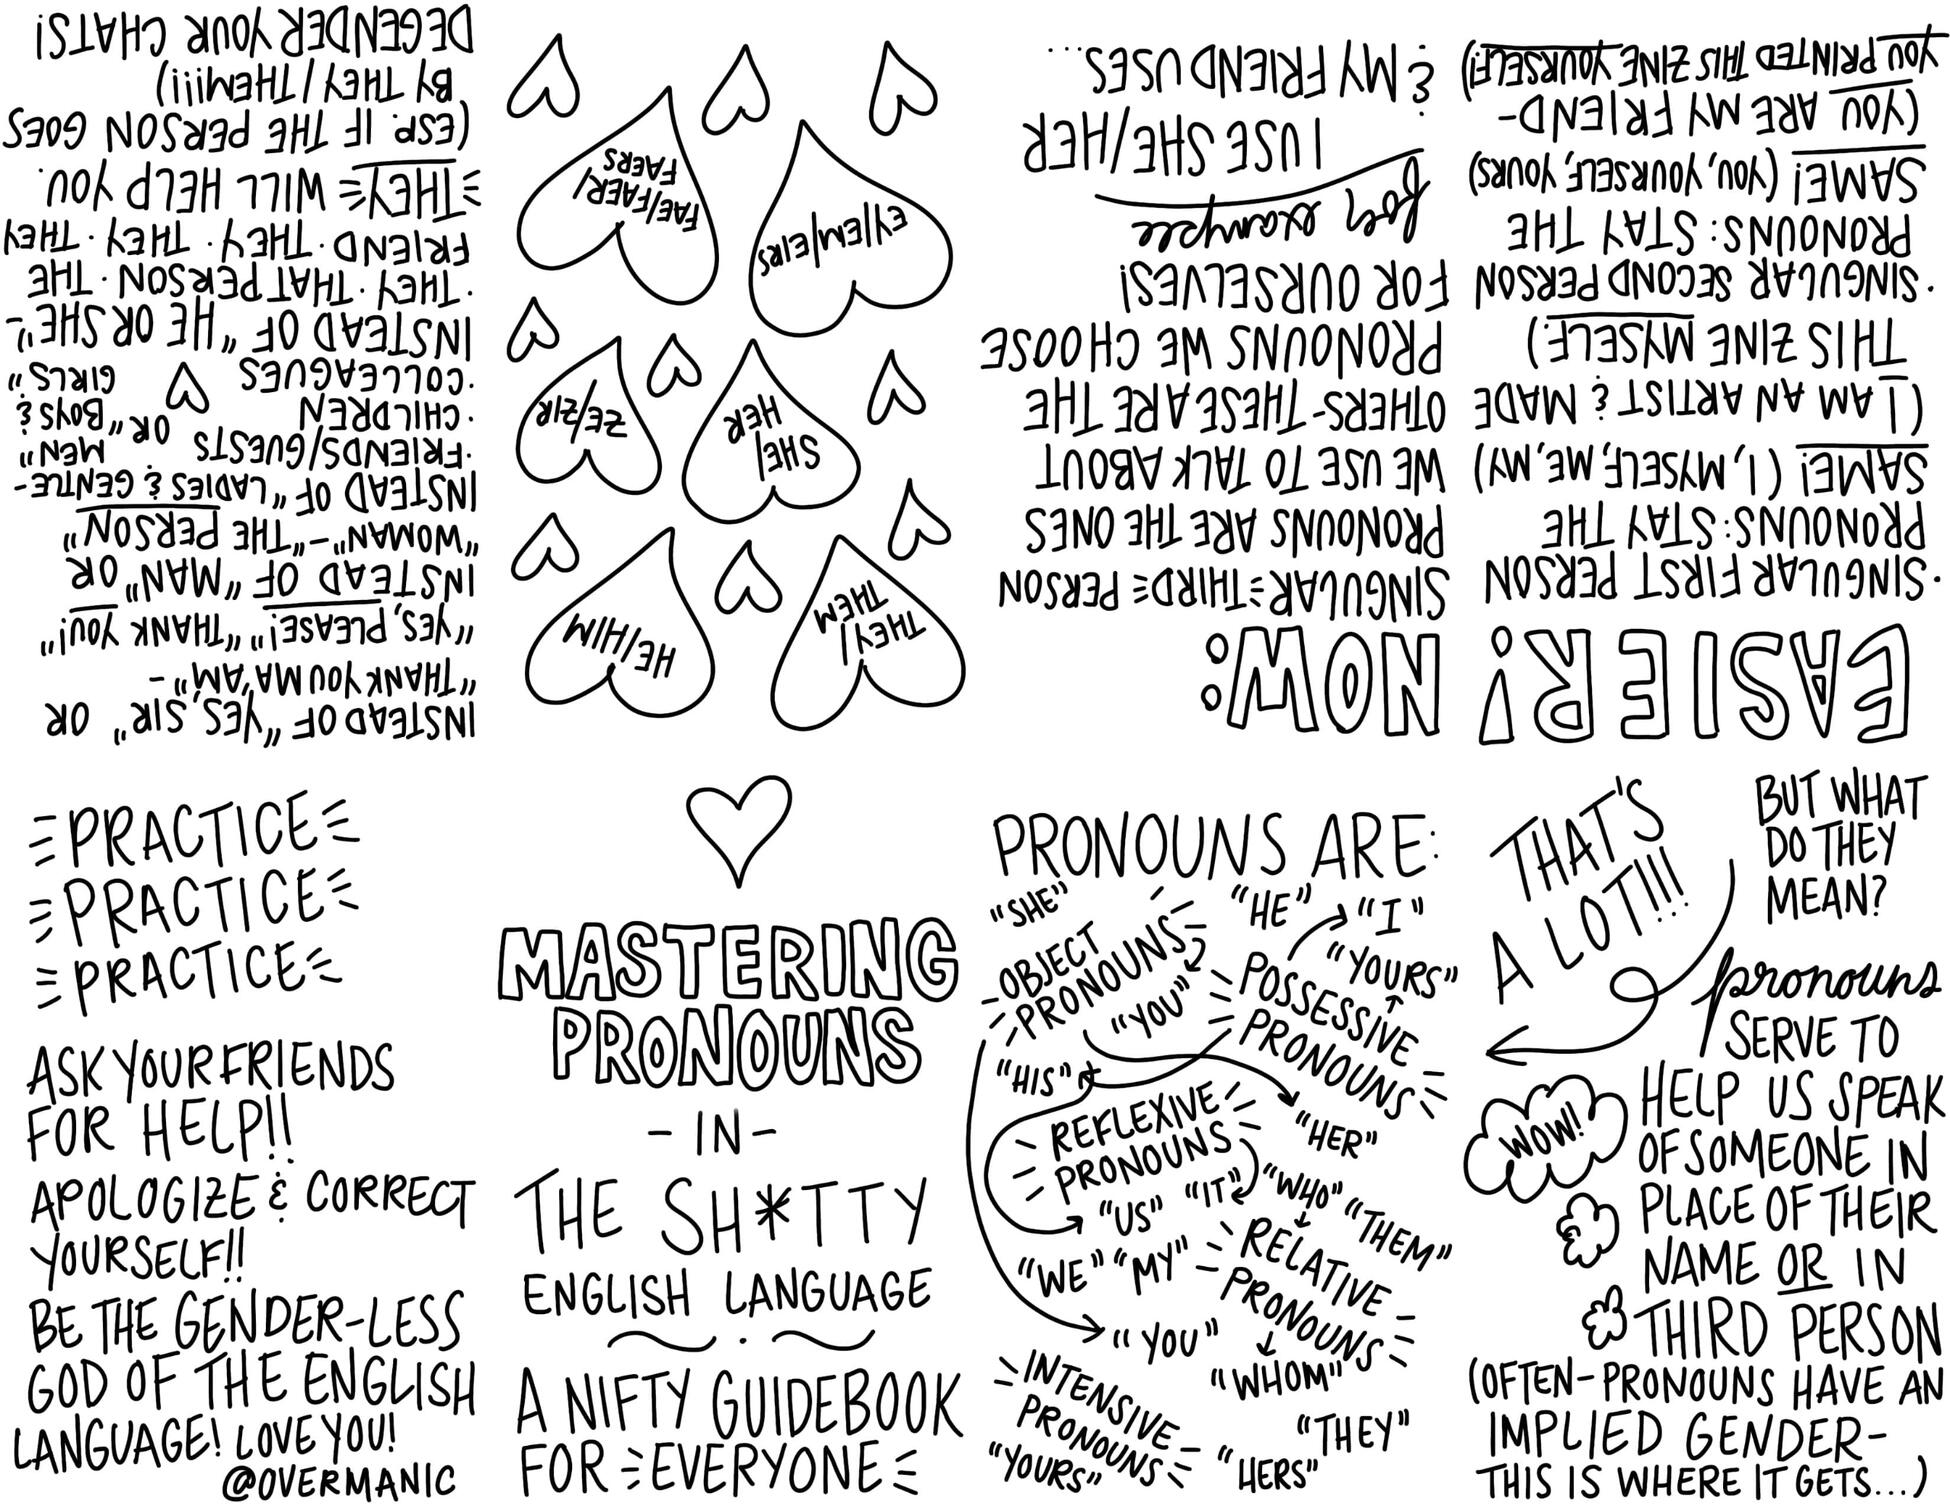 MASTERING
PRONOUNS
- IN -
THE SH*TTY
ENGLISH LANGUAGE
A NIFTY GUIDEBOOK
FOR EVERYONE
PRONOUNS ARE:
"SHE"
"HE"
"I"
OBJECT
PRONOUNS
"YOU"
"YOURS"
POSSESSIVE
PRONOUNS
"HIS"
REFLEXIVE
PRONOUNS
"HER"
"US"
"IT"
"WHO"
"THEM"
"WE"
"MY"
RELATIVE
PRONOUNS
"YOU"
"WHOM"
INTENSIVE
PRONOUNS
"YOURS"
"HERS"
"THEY"
THAT'S
A LOT!!!
BUT WHAT
DO THEY
MEAN?
pronouns
SERVE TO
HELP US SPEAK
OF SOMEONE IN
PLACE OF THEIR
NAME OR IN
THIRD PERSON
(OFTEN-PRONOUNS HAVE AN
IMPLIED GENDER-
THIS IS WHERE IT GETS...)
WOW!
EASIER!
·SINGULAR FIRST PERSON
PRONOUNS: STAY THE
SAME! (I, MYSELF, ME, MY)
(I AM AN ARTIST & MADE
THIS ZINE MYSELF!)
·SINGULAR SECOND PERSON
PRONOUNS: STAY THE
SAME! (YOU, YOURSELF, YOURS)
(YOU ARE MY FRIEND-
YOU PRINTED THIS ZINE YOURSELF!)
NOW:
SINGULAR THIRD PERSON
PRONOUNS ARE THE ONES
WE USE TO TALK ABOUT
OTHERS-THESE ARE THE
PRONOUNS WE CHOOSE
FOR OURSELVES!
for example
I USE SHE/HER
& MY FRIEND USES...
THEY/
THEM
HE/HIM
SHE/
HER
ZE/ZIR
EY/EM/EIRS
FAE/FAER/
FAERS
INSTEAD OF "YES, SIR" OR
"THANK YOU MA'AM" -
"YES, PLEASE!" "THANK YOU!"
INSTEAD OF "MAN" OR
"WOMAN"-"THE PERSON"
INSTEAD OF "LADIES & GENTLE-
MEN"
·FRIENDS/GUESTS
·CHILDREN
·COLLEAGUES
OR "BOYS &
GIRLS"
INSTEAD OF "HE OR SHE"-
·THEY·THAT PERSON·THE
FRIEND·THEY·THEY·THEY
THEY WILL HELP YOU
(ESP. IF THE PERSON GOES
BY THEY/THEM!!!)
DEGENDER YOUR CHATS!
PRACTICE
PRACTICE
PRACTICE
ASK YOUR FRIENDS
FOR HELP!!
APOLOGIZE & CORRECT
YOURSELF!!
BE THE GENDER-LESS
GOD OF THE ENGLISH
LANGUAGE! LOVE YOU!
@OVERMANIC